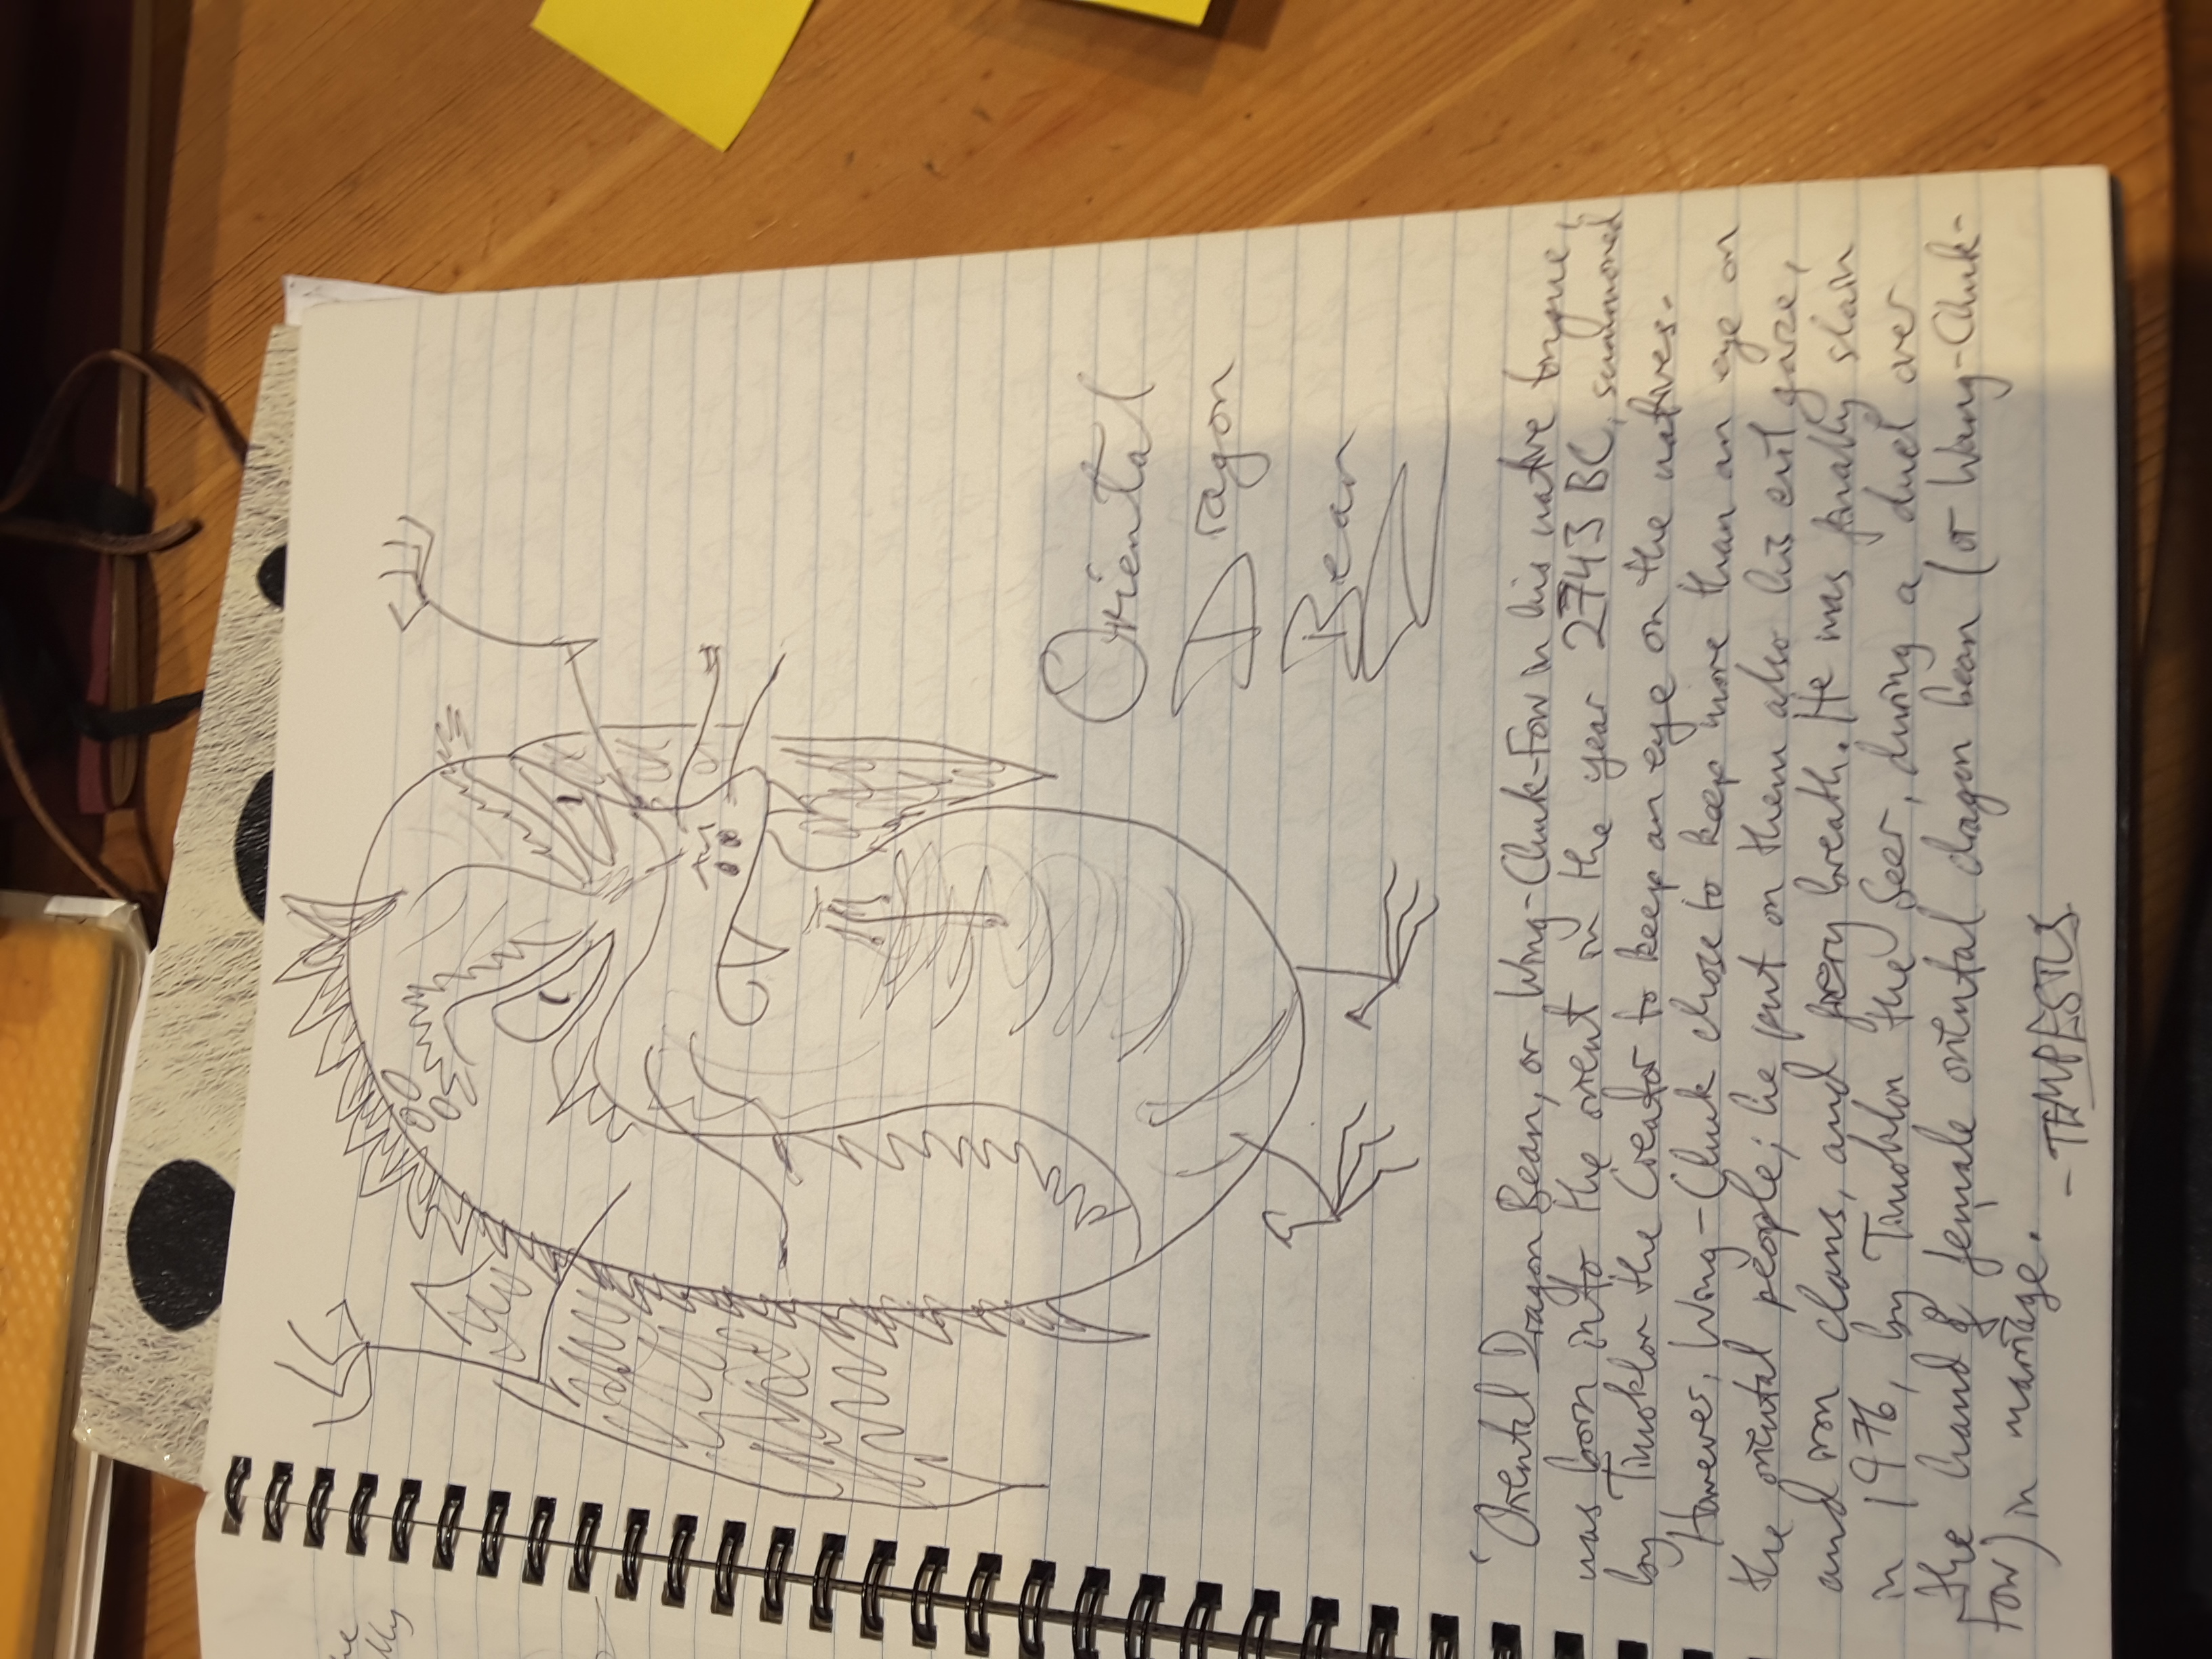 he
lly
Oriental
Dragon
Bean
'Oriental Dragon Bean, or Wing-Chuk-Fow in his native tongue,
was born into the orient in the year 2743 BC, summoned
by Timoklon the Creator to keep an eye on the natives.
However, Wing-Chuk chose to keep more than an eye on
the oriental people; he put on them also his evil gaze,
and iron claws, and fiery breath. He was finally slain
in 1976, by Timoklon the Seer, during a duel over
the hand of female oriental dragon bean (or Wang-Chuk-
Fow) in marriage.
- TEMPESTUS